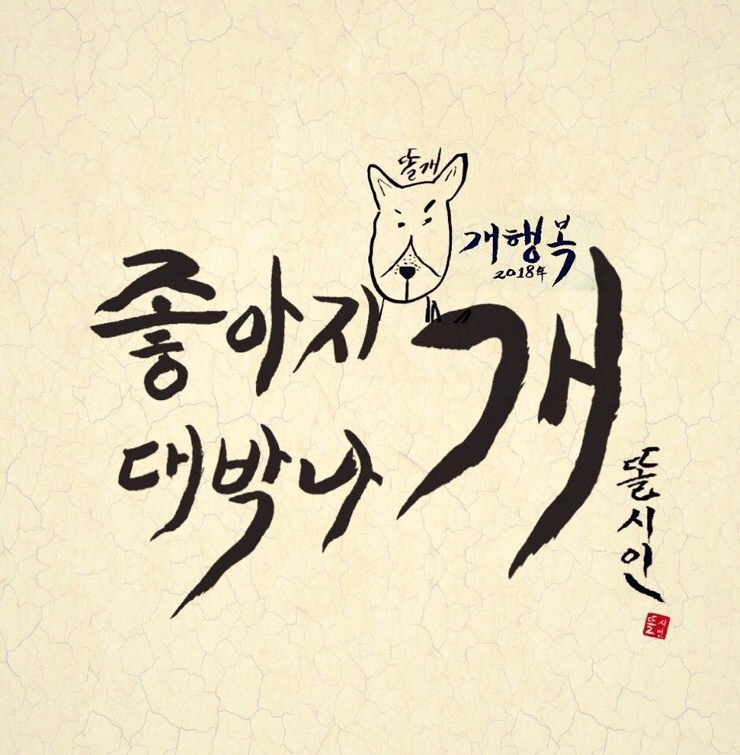 똘개
개행복
2018年
좋아지개
대박나
똘시인
똘시인